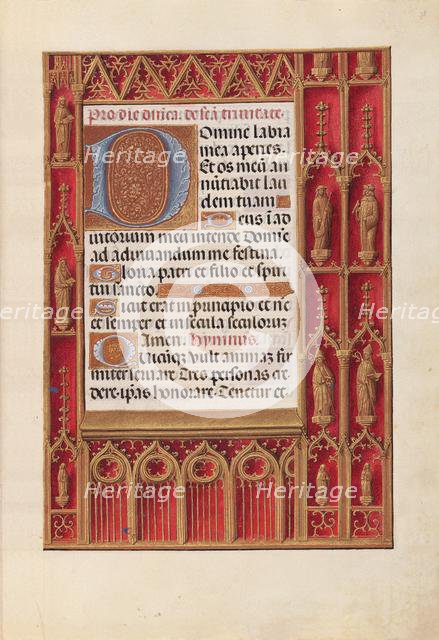 Pro die dnica. de scā trinitate.
Domine labia
mea aperies.
Et os meū an
nūciabit lau
dem tuam.
Deus ī ad
iutorium meū intende Domine
ad adiuuandum me festina.
Gloria patri et filio et spiri
tui sancto.
Sicut erat in principio et nūc
et semper et in secula seculoruz
Amen. Hymnus.
Quicūqz vult animaz fir
miter seruare Tres personas cre
dere ip̄as honorare Tenetur et
Heritage
Heritage
Heritage
Heritage
Heritage
Heritage
Heritage
Heritage